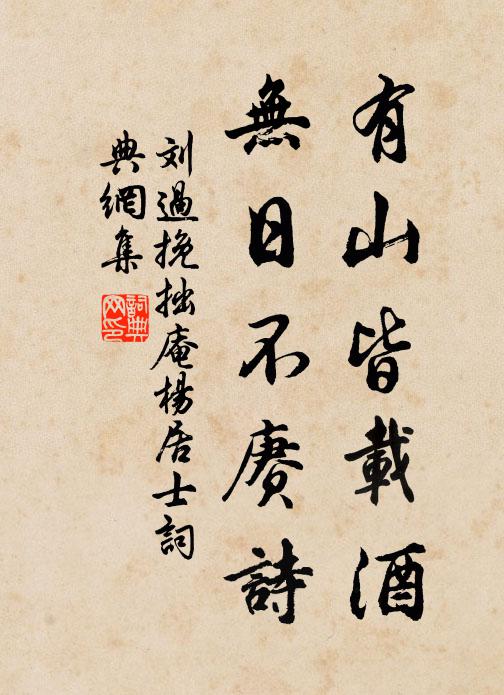 有山皆載酒
無日不賡詩
刘過挽拙庵楊居士詞
典網集
詞典網印